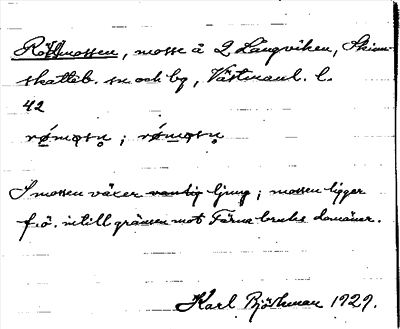 Röttmossen, mosse å 2 Långviken, Skinn-
skatteb. sn och by, Västmanl. l.
42
I mossen växer vanlig ljung; mossen ligger
f.ö. intill gränsen mot Färna bruks domäner.
Karl Björkman 1929.